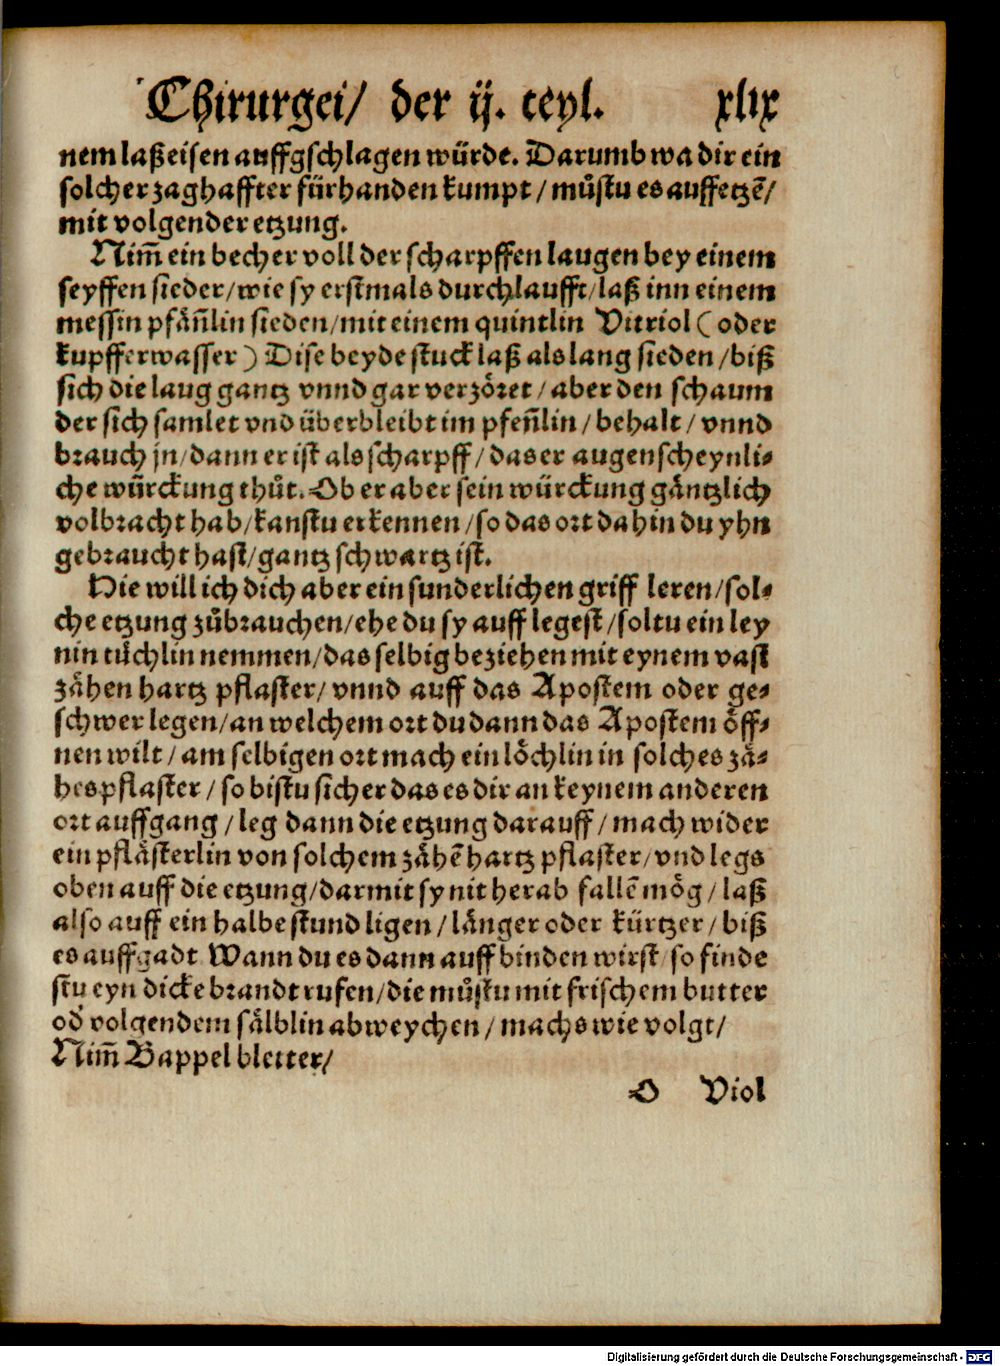 Chirurgei/ der ij. teyl. xlix
nem laßeisen auffgschlagen würde. Darumb wa dir ein
solcher zaghaffter fürhanden kumpt/ můstu es auffetzē/
mit volgender etzung.
Nim̄ ein becher voll der scharpffen laugen bey einem
seyffen sieder/ wie sy erstmals durchlaufft/ laß inn einem
messin pfän̄lin sieden/ mit einem quintlin Vitriol (oder
kupfferwasser) Dise beyde stuck laß als lang sieden/ biß
sich die laug gantz vnnd gar verzöret/ aber den schaum
der sich samlet vnd überbleibt im pfen̄lin/ behalt/ vnnd
brauch jn/ dann er ist als scharpff/ das er augenscheynli-
che würckung thůt. Ob er aber sein würckung gäntzlich
volbracht hab/ kanstu erkennen/ so das ort dahin du yhn
gebraucht hast/ gantz schwartz ist.
Hie will ich dich aber ein sunderlichen griff leren/ sol-
che etzung zůbrauchen/ ehe du sy auff legest/ soltu ein ley
nin tůchlin nemmen/ das selbig beziehen mit eynem vast
zähen hartz pflaster/ vnnd auff das Apostem oder ge-
schwer legen/ an welchem ort du dann das Apostem öff-
nen wilt/ am selbigen ort mach ein löchlin in solches zä-
hes pflaster/ so bistu sicher das es dir an keynem anderen
ort auffgang/ leg dann die etzung darauff/ mach wider
ein pflästerlin von solchem zähē hartz pflaster/ vnd legs
oben auff die etzung/ darmit sy nit herab fallē mög/ laß
also auff ein halbe stund ligen/ länger oder kürtzer/ biß
es auffgadt Wann du es dann auff binden wirst/ so finde
stu eyn dicke brandt rufen/ die můstu mit frischem butter
od̄ volgendem sälblin abweychen/ machs wie volgt/
Nim̄ Bappel bletter/
O Viol
Digitalisierung gefördert durch die Deutsche Forschungsgemeinschaft - DFG